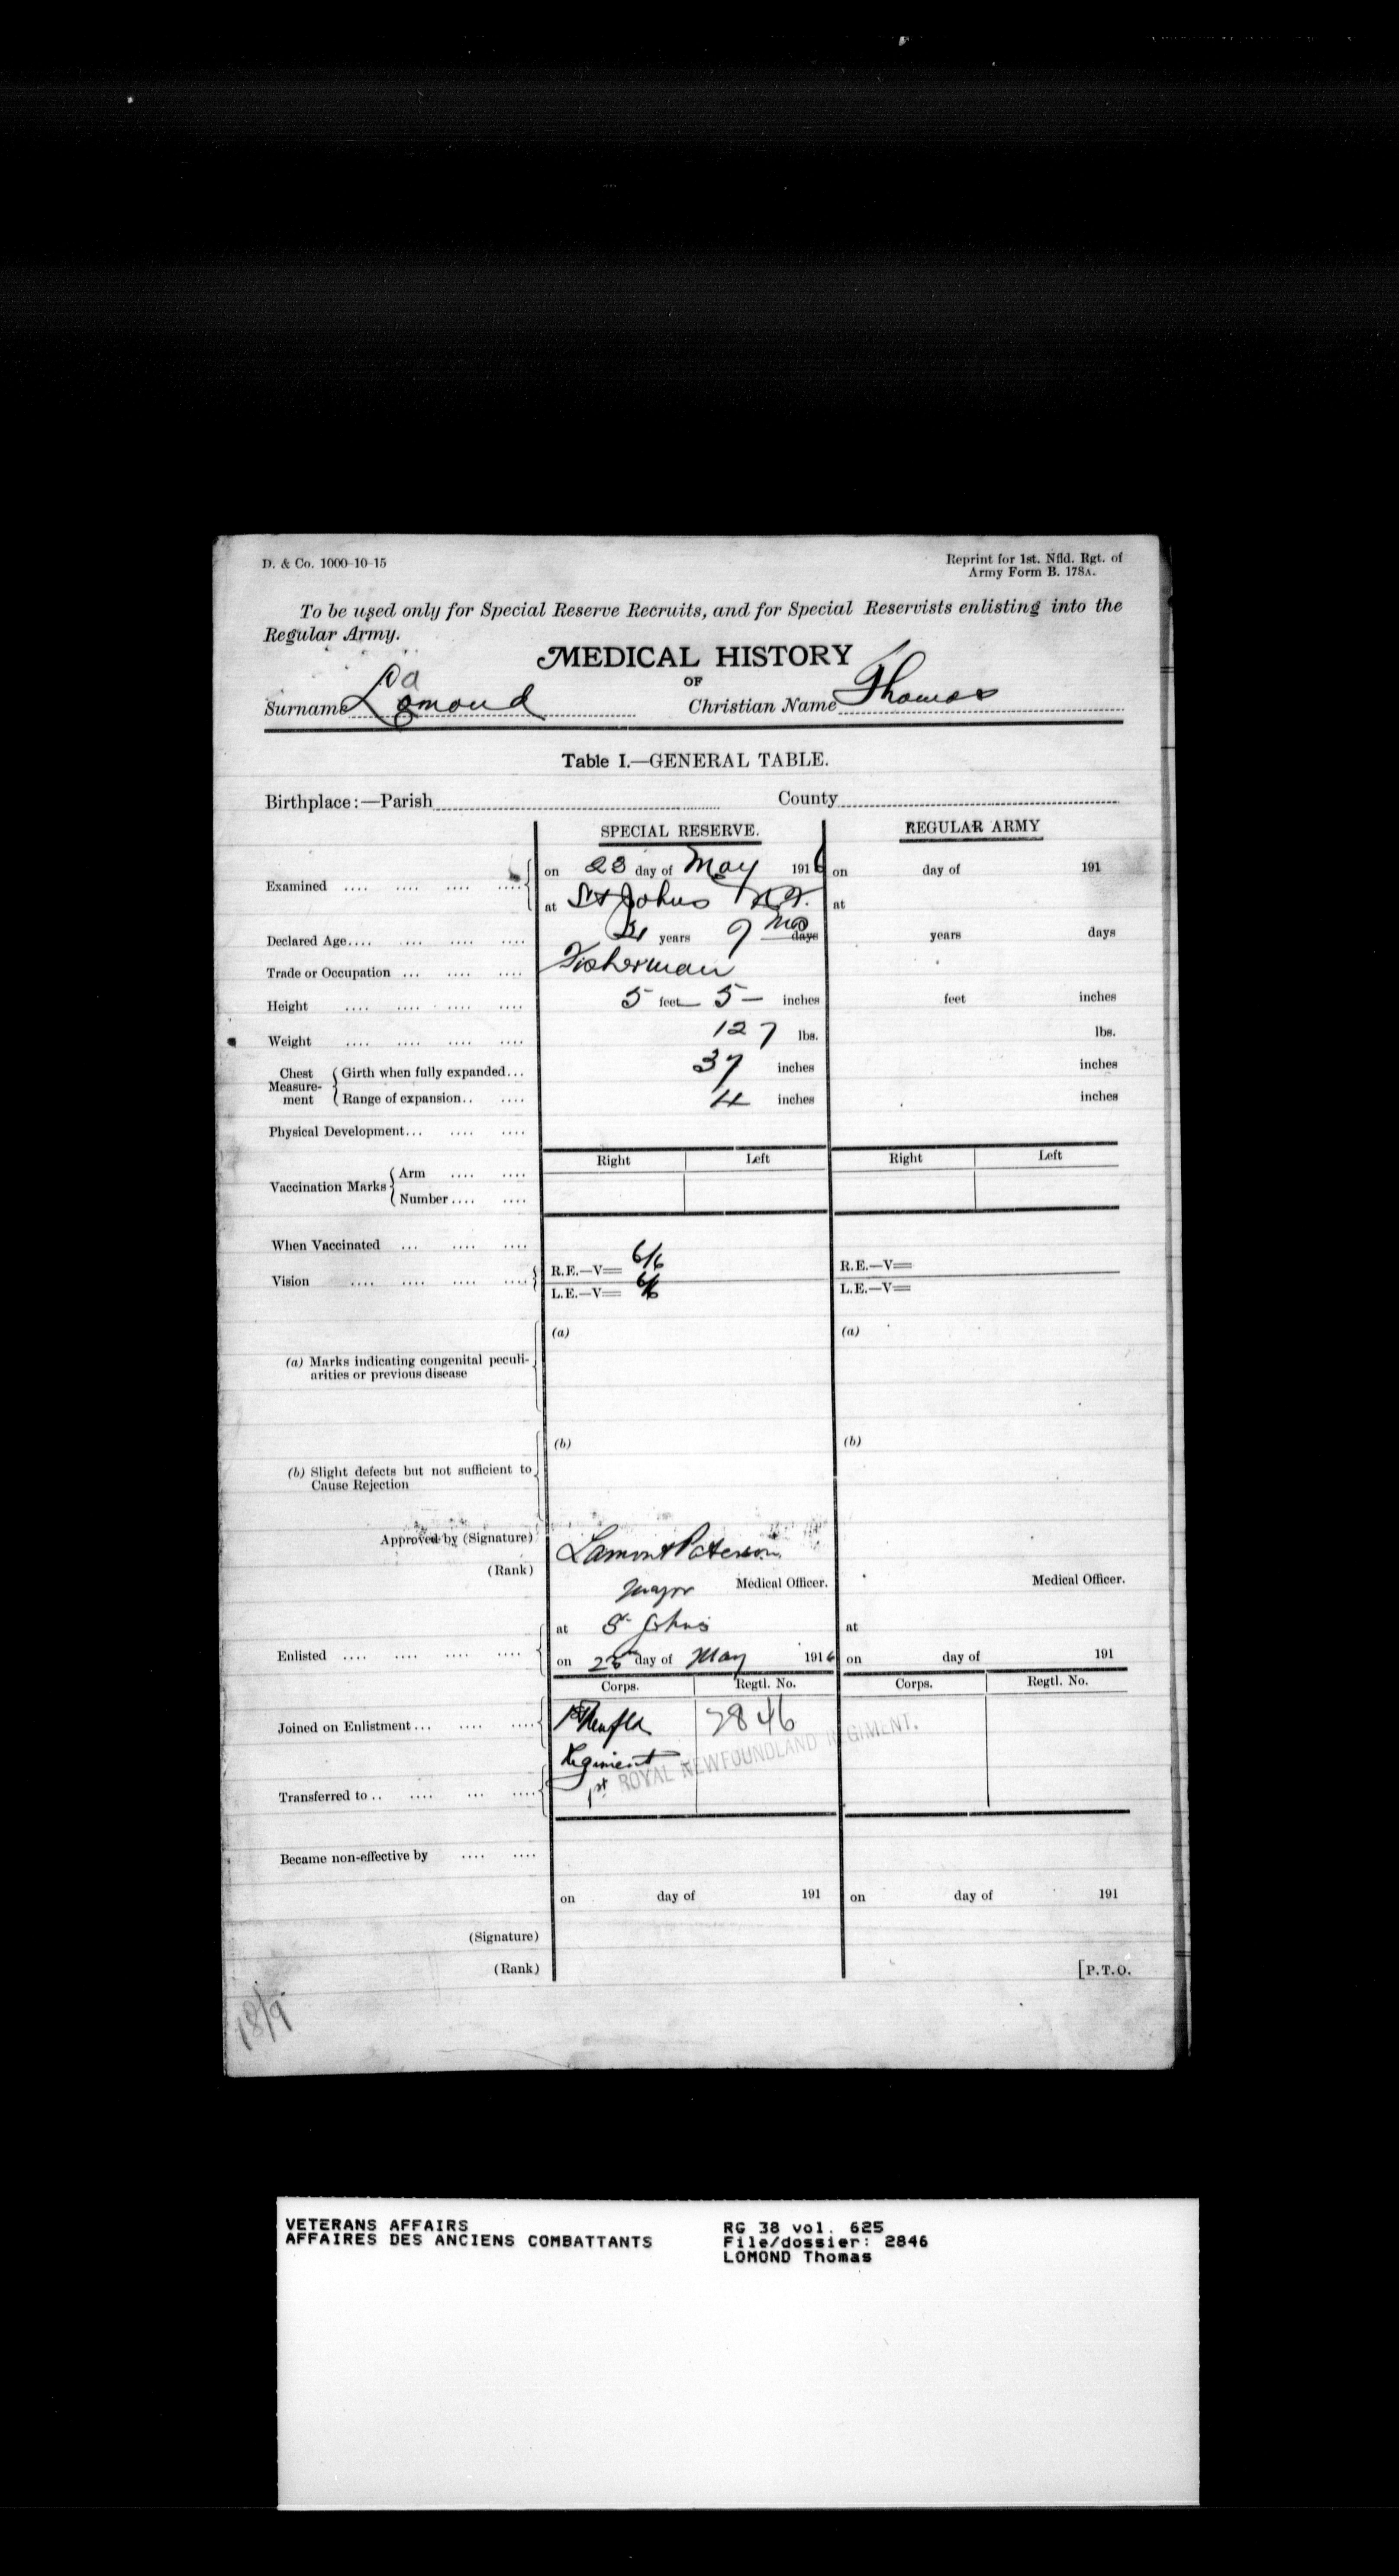 D. & Co. 1000-10-15
Reprint for 1st. Nfld. Rgt. of
Army Form B. 178A.
To be used only for Special Reserve Recruits, and for Special Reservists enlisting into the
Regular Army.
MEDICAL HISTORY
OF
Surname Lomond Christian Name Thomas
Table I.—GENERAL TABLE.
Birthplace:—Parish County
SPECIAL RESERVE. REGULAR ARMY
Examined .... .... .... .... on 23 day of May 1916 on day of 191
at St Johns N.F. at
Declared Age.... .... .... .... 21 years 9 mos days years days
Trade or Occupation ... .... .... Fisherman
Height .... .... .... .... 5 feet 5 — inches feet inches
Weight .... .... .... .... 127 lbs. lbs.
Chest Measurement Girth when fully expanded... 37 inches inches
Range of expansion.. .... 4 inches inches
Physical Development... .... ....
Right Left Right Left
Vaccination Marks Arm .... ....
Number .... ....
When Vaccinated ... .... ....
Vision .... .... .... .... R.E.—V= 6/6 R.E.—V=
L.E.—V= 6/6 L.E.—V=
(a) (a)
(a) Marks indicating congenital peculi-
arities or previous disease
(b) (b)
(b) Slight defects but not sufficient to
Cause Rejection
Approved by (Signature) Lamont Paterson
(Rank) Major Medical Officer. Medical Officer.
at St Johns at
Enlisted .... .... .... .... on day of May 1916 on day of 191
Corps. Regtl. No. Corps. Regtl. No.
Joined on Enlistment... .... .... 1st Newfld 2846
Regiment
1st ROYAL NEWFOUNDLAND REGIMENT.
Transferred to .. .... ... ....
Became non-effective by .... ....
on day of 191 on day of 191
(Signature)
(Rank)
[P.T.O.
18/9
VETERANS AFFAIRS
AFFAIRES DES ANCIENS COMBATTANTS
RG 38 vol. 625
File/dossier: 2846
LOMOND Thomas